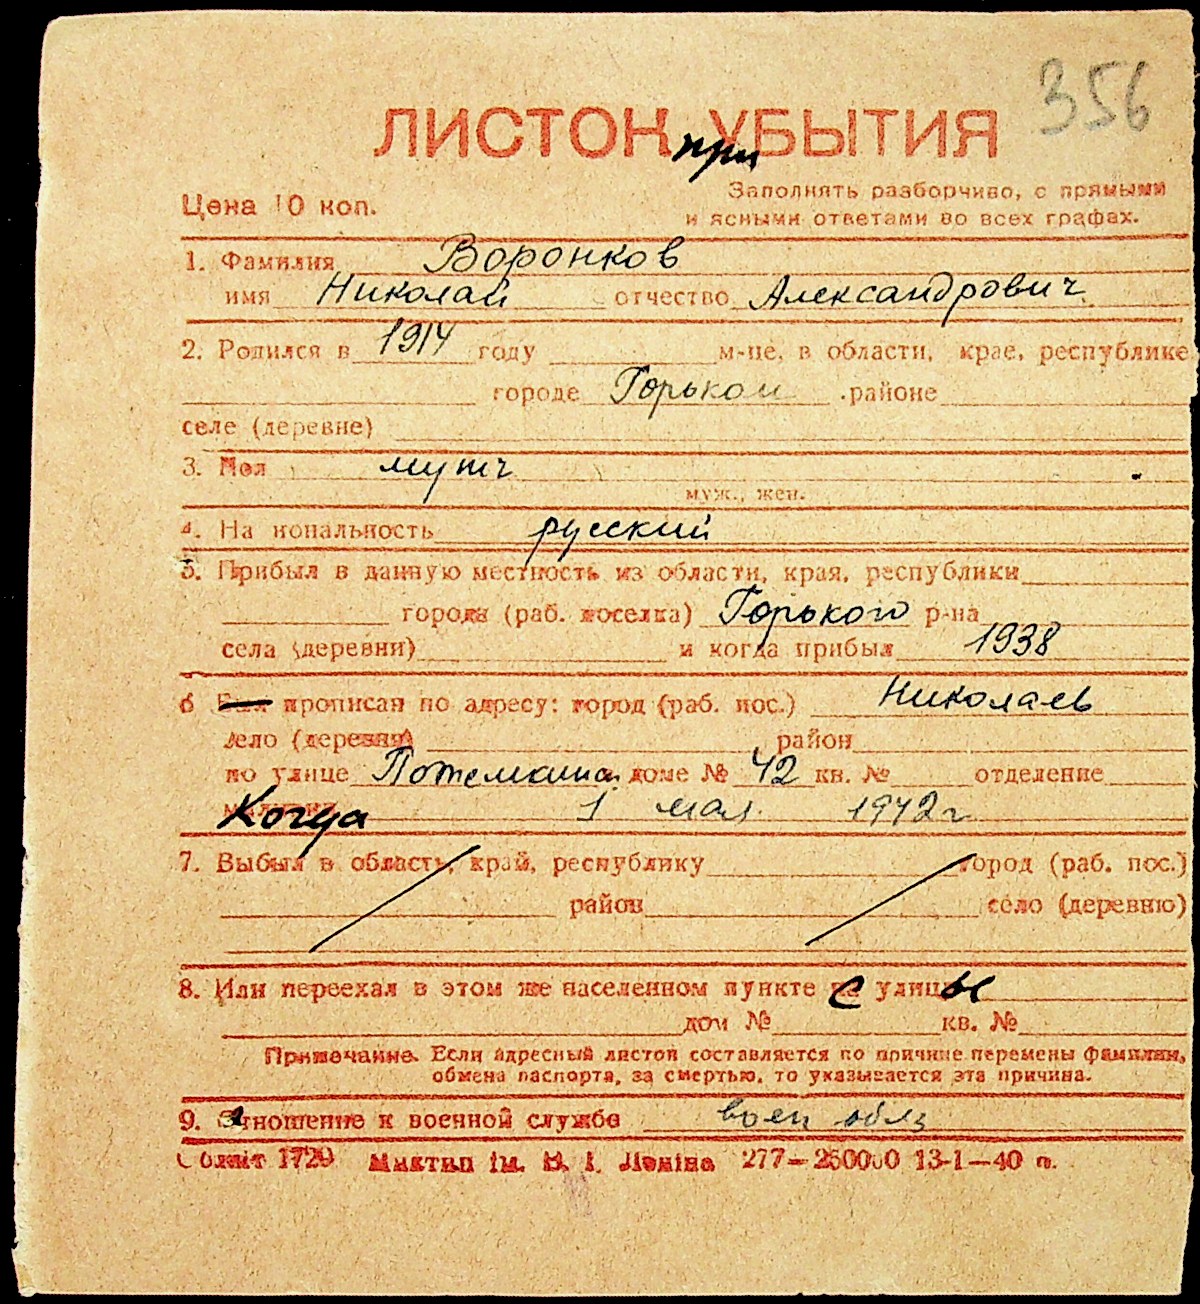 356
ЛИСТОК при УБЫТИЯ
Цена 10 коп.
Заполнять разборчиво, с прямыми
и ясными ответами во всех графах.
1. Фамилия Воронков
имя Николай отчество Александрович
2. Родился в 1914 году м-це, в области, крае, республике
городе Горьком районе
селе (деревне)
3. Пол мутч
муж., жен.
4. Национальность русский
5. Прибыл в данную местность из области, края, республики
города (раб. поселка) Горького р-на
села (деревни) и когда прибыл 1938
6 Был прописан по адресу: город (раб. пос.) Николаев
село (деревня) район
по улице Потемкина доме № 42 кв. № отделение
Когда 1 мая 1942 г
7. Выбыл в область, край, республику город (раб. пос.)
район село (деревню)
8. Или переехал в этом же населенном пункте с улицы
дом № кв. №
Примечание. Если адресный листок составляется по причине перемены фамилии,
обмена паспорта, за смертью, то указывается эта причина.
9. Отношение к военной службе воен обяз
Облліт 1729 Миктип ім. В. І. Леніна 277—250000 13-1—40 р.